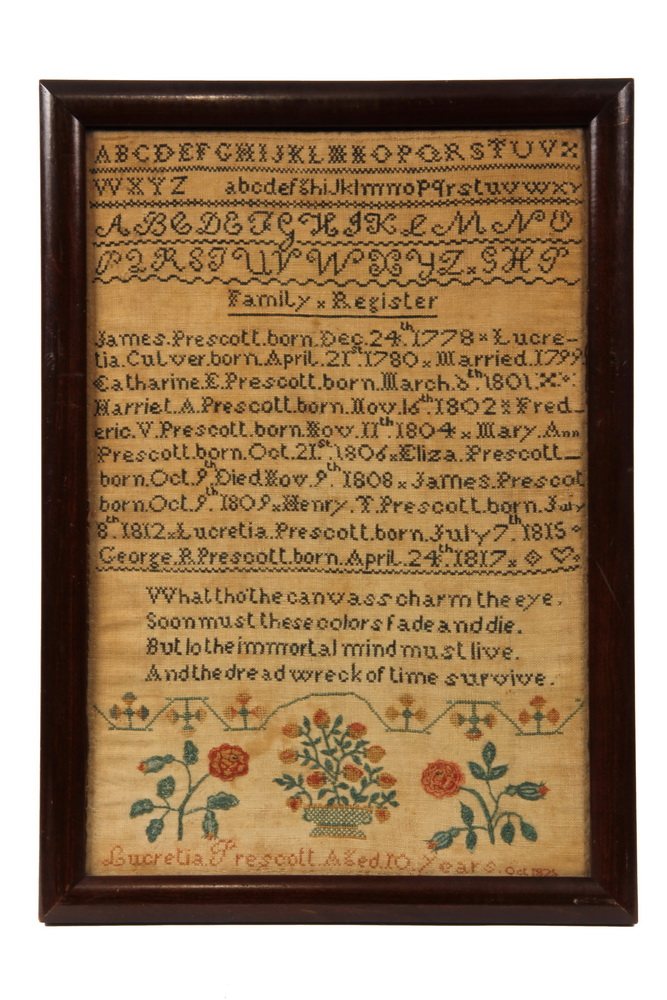 ABCDEFGHIJKLMNOPQRSTUV
WXYZ abcdefghiJklmnopqrstuvwxy
ABCDEFGHIKLMNO
PQRSTUVWXYZxGHP
Family x Register
James.Prescott.born.Dec.24th.1778 x Lucre-
tia.Culver.born.April.21st.1780 x Married.1799
Catharine.E.Prescott.born.March. 1801
Harriet.A.Prescott.born.Nov.16th.1802 Fred-
eric.V.Prescott.born.Nov.11th.1804 x Mary.Ann
Prescott.born.Oct.21st.1806 x Eliza.Prescott-
born.Oct.9th.Died.Nov.9th.1808 x James.Prescot
born.Oct.9th.1809 x Henry.T.Prescott.born.July
8th.1812 x Lucretia.Prescott.born.July.7th.1815
George.R.Prescott.born.April.24th.1817 x
What tho' the canvass charm the eye.
Soon must these colors fade and die.
But lo the immortal mind must live.
And the dread wreck of time survive.
Lucretia.Prescott.Aged.10.Years. Oct